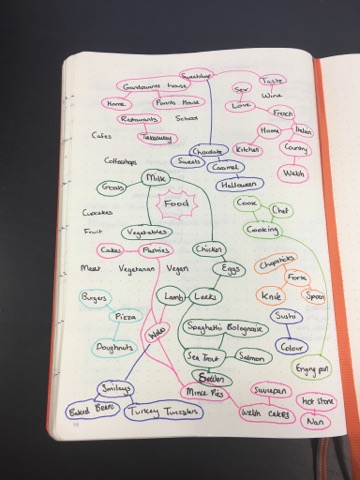 Sweetshop
Grandparents house
Taste
Sex
Wine
Home
Parents House
Love
French
Restaurants
School
Takeaway
Home
Italian
Cafes
Country
Chocolate
Kitchen
Sweets
Caramel
Welsh
Coffeeshops
Milk
Halloween
Goats
Food
Cook
Chef
Cupcakes
Cooking
Fruit
Vegetables
Cakes
Fannies
Chicken
Chopsticks
Meat
Vegetarian
Vegan
Eggs
Fork
Burgers
Lamb
Leeks
Knife
Spoon
Pizza
Sushi
Wales
Spaghetti Bolognaise
Doughnuts
Colour
Sea Trout
Salmon
Smileys
Mince Pies
Saucepan
Hot stone
Baked Beans
Turkey Twizzlers
Welsh cakes
Nan